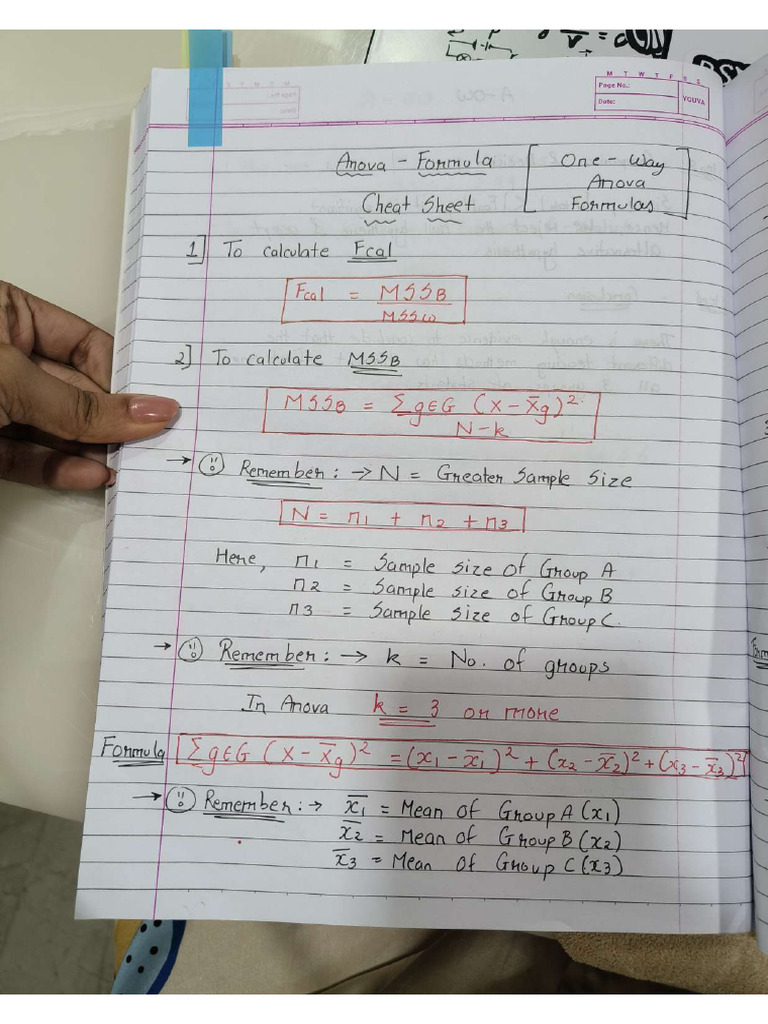 M T W T F S S
Page No.:
Date:
YOUVA
Anova - Formula
Cheat Sheet
One - Way
Anova
Formulas
1] To calculate Fcal
Fcal = MSSB / MSSW
2] To calculate MSSB
MSSB = Σg∈G (X - X̄g)² / N-k
→ Remember: → N = Greater Sample Size
N = n1 + n2 + n3
Here, n1 = Sample size of Group A
n2 = Sample size of Group B
n3 = Sample size of Group C.
→ Remember: → k = No. of groups
In Anova k = 3 or more
Formula Σg∈G (X - X̄g)² = (x1 - x̄1)² + (x2 - x̄2)² + (x3 - x̄3)²
→ Remember: → x̄1 = Mean of Group A (x1)
x̄2 = Mean of Group B (x2)
x̄3 = Mean of Group C (x3)